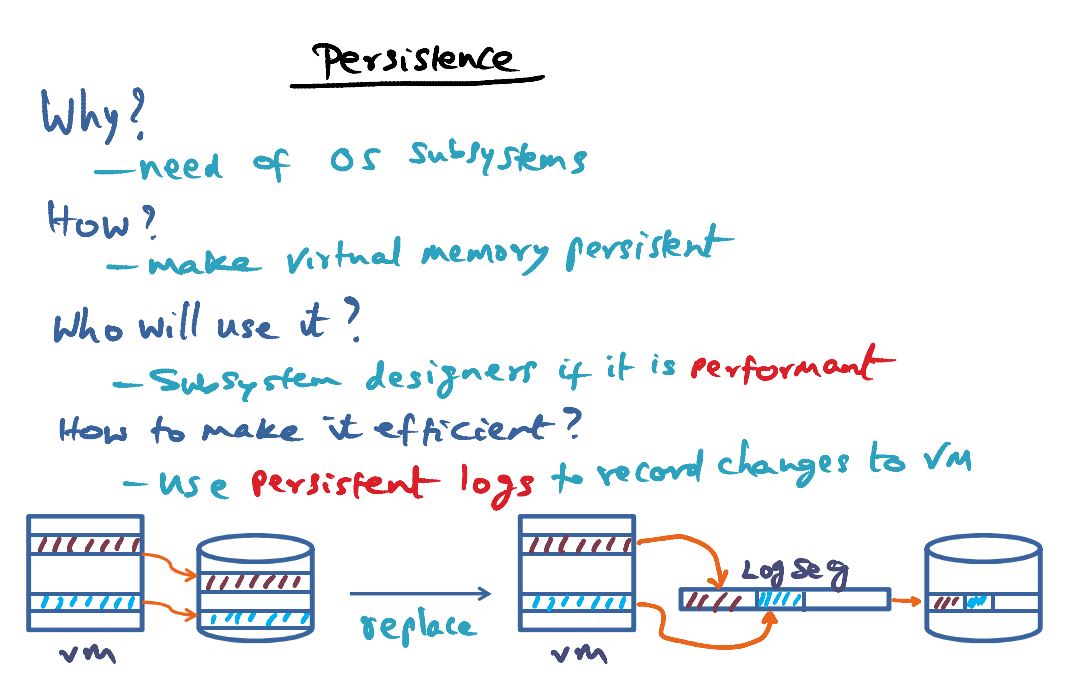 Persistence
Why?
— need of OS subsystems
How?
— make virtual memory persistent
Who will use it?
— Subsystem designers if it is performant
How to make it efficient?
— use persistent logs to record changes to VM
Log Seg
replace
vm
vm